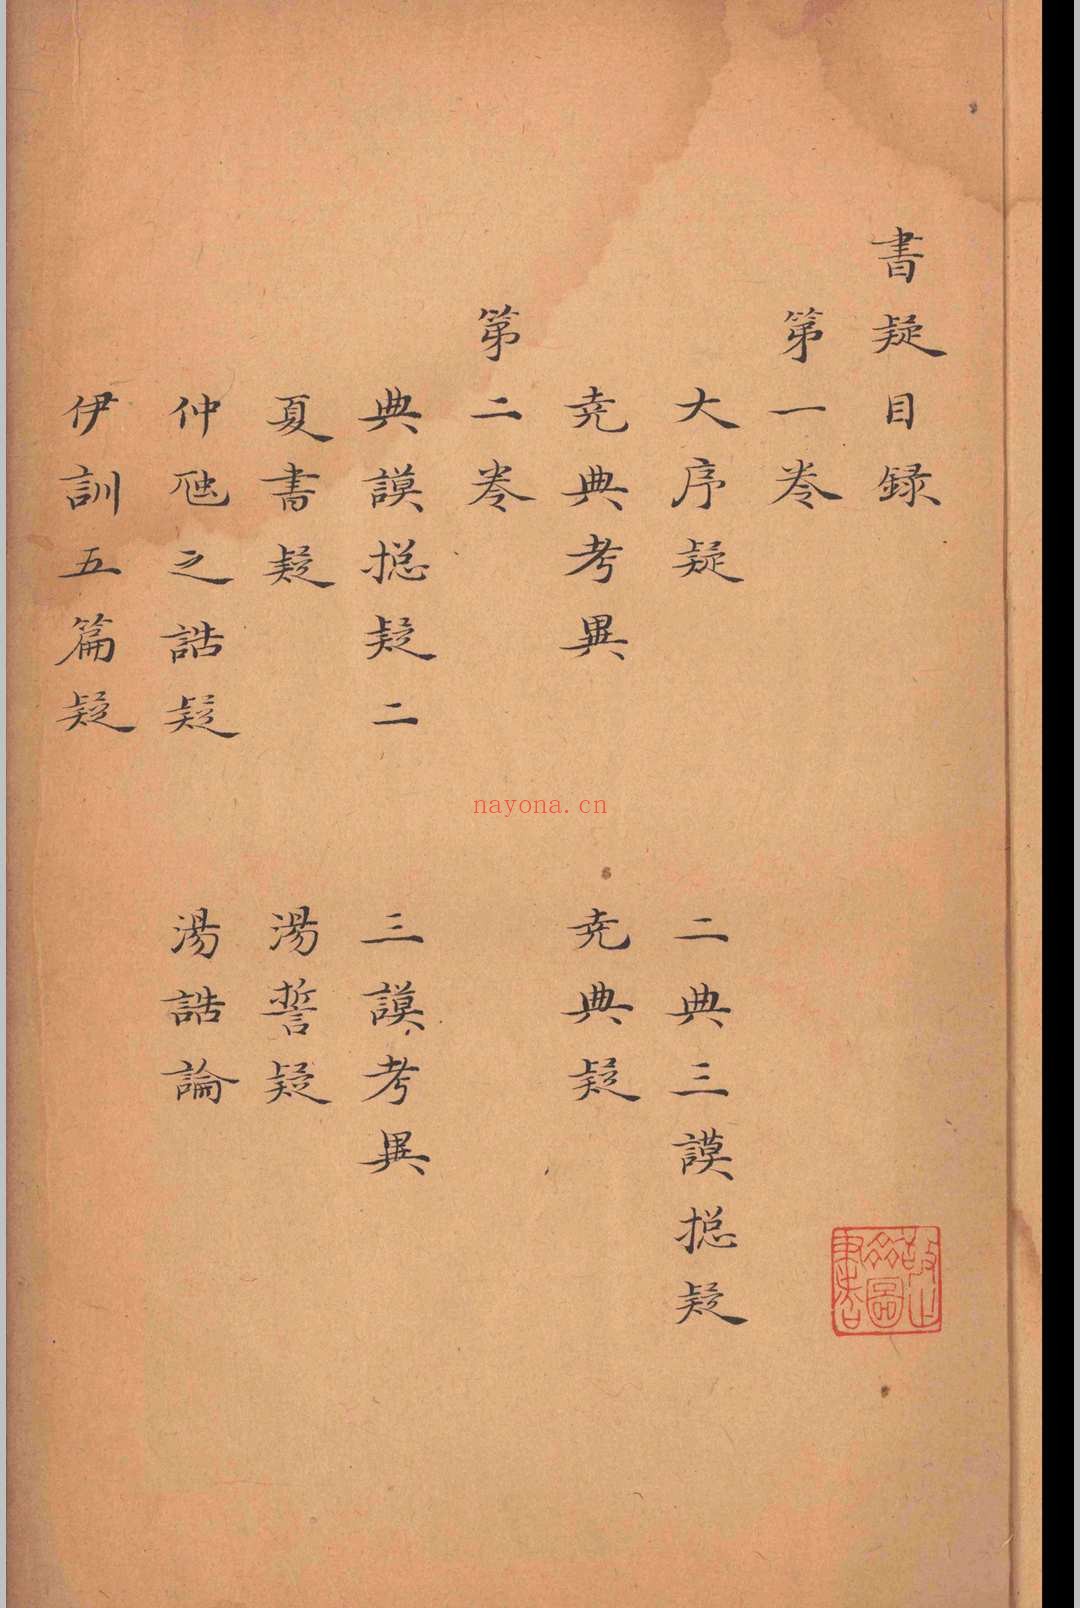 書疑目録
第一卷
大序疑　二典三謨揔疑
堯典考異　堯典疑
第二卷
典謨揔疑二　三謨考異
夏書疑　湯誓疑
仲虺之誥疑　湯誥論
伊訓五篇疑
nayona.cn